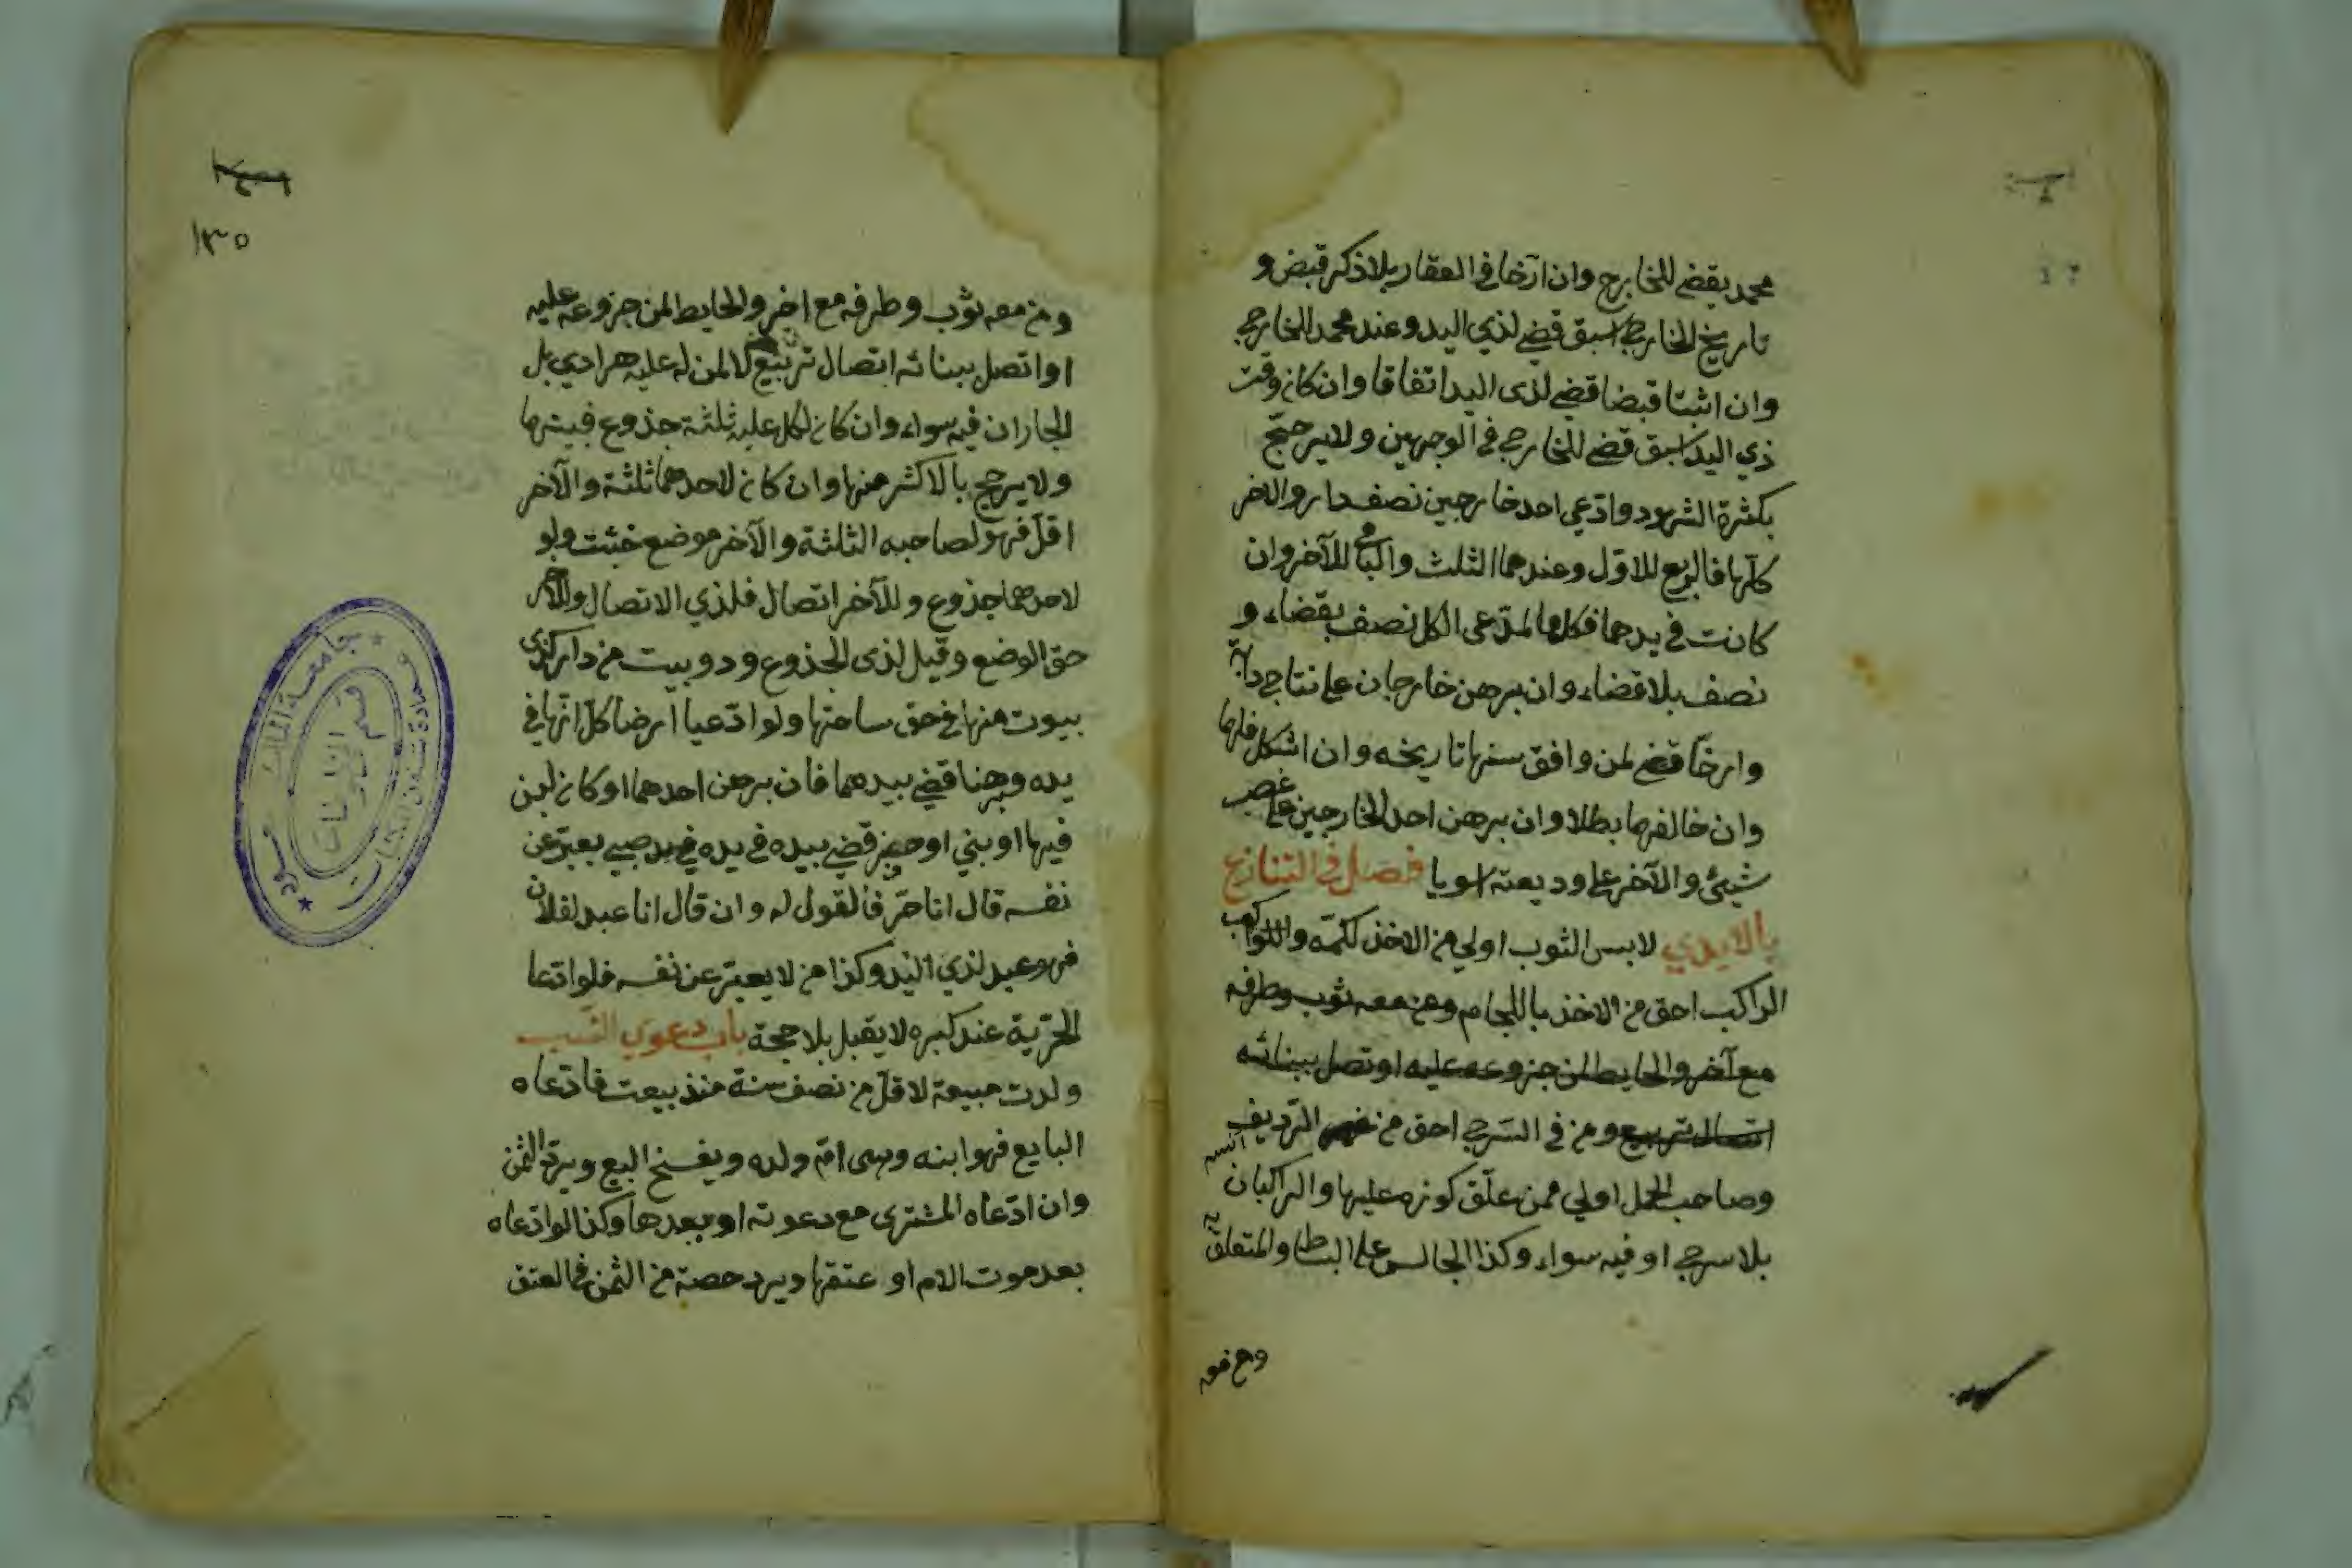 محمد يقضي للخارج وان ارّخا في العقار بلا ذكر قبض و
تاريخ الخارج اسبق قضي لذي اليد وعند محمد للخارج
وان اثبتا قبضا قضي لذى اليد اتفاقا وان كان وقت
ذي اليد اسبق قضي للخارج في الوجهين ولا يرجّح
بكثرة الشهود وادّعي احد خارجين نصف دار والاخر
كلّها فالربع للاوّل وعندهما الثلث والباقي للآخر وان
كانت في يدهما فكلها لمدّعى الكل نصف بقضاء و
نصف بلا قضاء وان برهن خارجان على نتاج دابّة
وارخّا قضي لمن وافق سنها تاريخه وان اشكل فلها
وان خالفهما بطلا وان برهن احد الخارجين على غصب
شيئ والآخر على وديعته استويا فصل في التنازع
بالايدي لابس الثوب اولي من الاخذ لكمّه
الراكب احق من الاخذ باللجام ومن معه ثوب وطرفه
مع آخر والحايط لمن جزوعه عليه او تصل ببنائه
اتصال تربيع ومن في السّرج احق من الرّديف
وصاحب الحمل اولي ممن علّق كوزه عليها والراكبان
بلا سرج او فيه سواء وكذا الجالس على البساط والمتعلق به
ومع فو
١٣٥
ومن معه ثوب وطرفه مع اخر والحايط لمن جزوعه عليه
او اتصل ببنائه اتصال تربيع لا لمن له عليه هرادي بل
الجاران فيه سواء وان كان لكل عليه ثلثة جذوع فبينهما
ولا يرجح بالاكثر منها وان كان لاحدهما ثلثة والآخر
اقلّ فهو لصاحبه الثلثة والآخر موضع خشبته ولو
لاحدهما جذوع وللآخر اتصال فلذي الاتصال وللآخر
حق الوضع وقيل لذى الجذوع وذو بيت من دار كذي
بيوت منها في حق ساحتها ولو ادّعيا ارضا كلّ انّها في
يده وبرهنا قضي بيدهما فان برهن احدهما او كان لبن
فيها او بني او حفر قضي بيده في يده صبي يعبّر عن
نفسه قال انا حرّ فالقول له وان قال انا عبد لفلان
فهو عبد لذي اليد وكذا من لا يعبّر عن نفسه فلو ادّعا
الحرّية عند كبره لا يقبل بلا حجة باب دعوي النّسب
ولدت مبيعة لاقلّ من نصف سنة منذ بيعت فادّعاه
البايع فهو ابنه وهى امّ ولده ويفسخ البيع ويردّ الثمن
وان ادّعاه المشترى مع دعوته او بعدها وكذا لو ادّعاه
بعد موت الام او عتقها ويرد حصته من الثمن في العتق